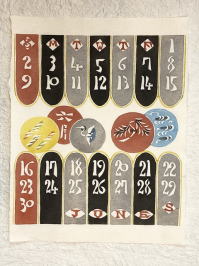 S M T W T 1
2 3 4 5 6 7 8
9 10 11 12 13 14 15
16 17 18 19 20 21 22
23 24 25 26 27 28 29
30 J U N E S